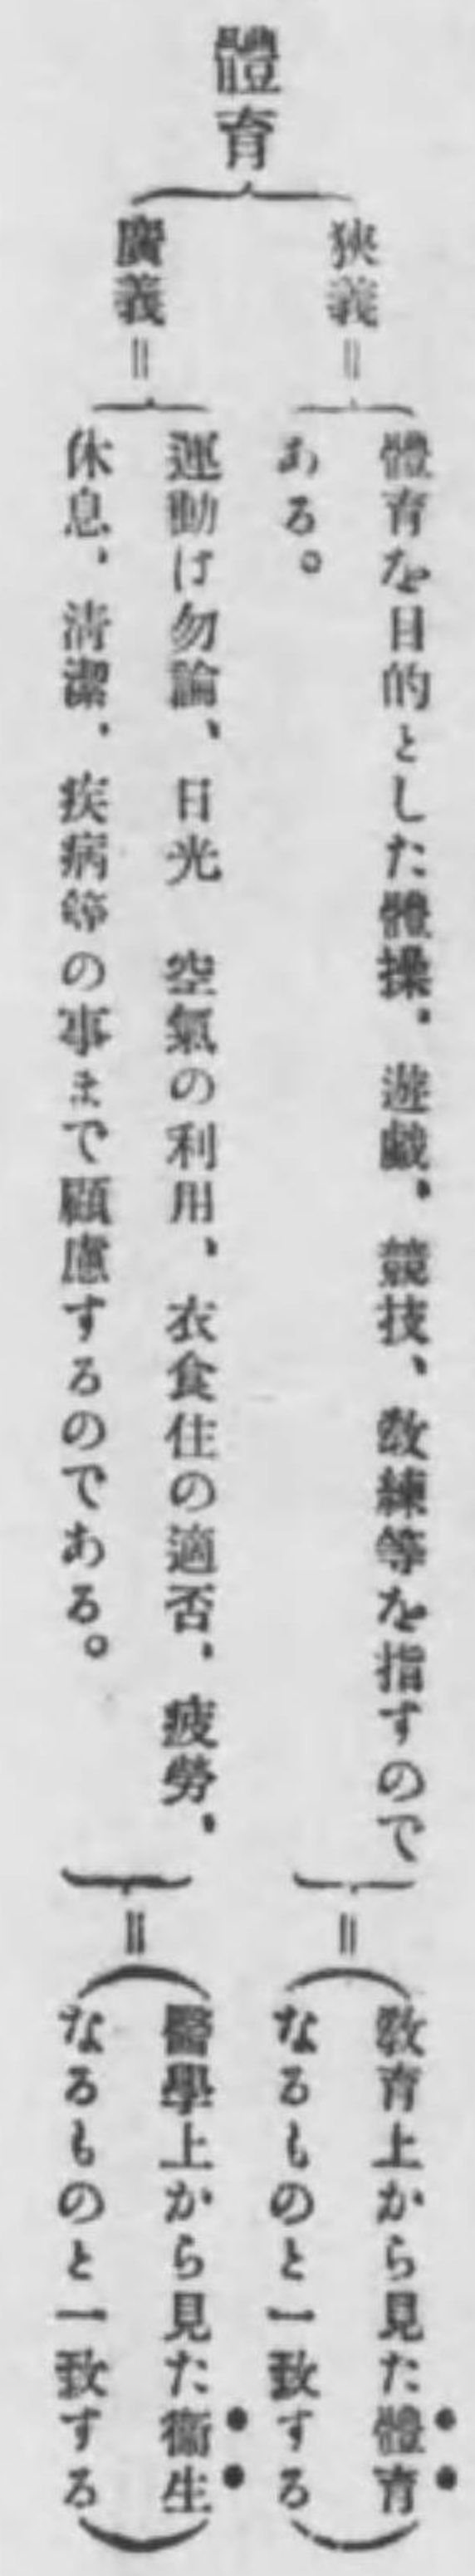 體育
狹義＝
體育を目的とした體操、遊戲、競技、敎練等を指すので
ある。
＝(敎育上から見た體育
なるものと一致する)
廣義＝
運動は勿論、日光　空氣の利用、衣食住の適否、疲勞、
休息、淸潔、疾病等の事まで顧慮するのである。
＝(醫學上から見た衞生
なるものと一致する)